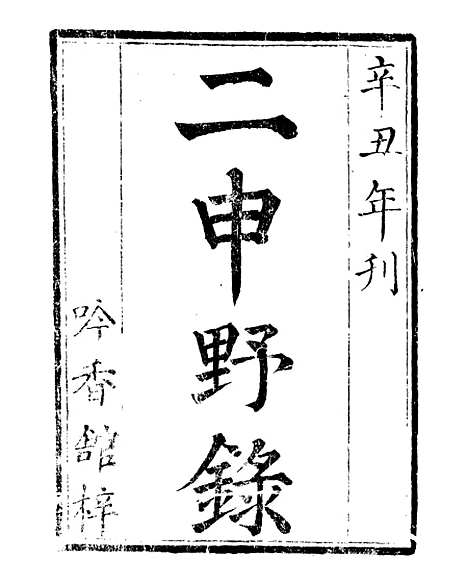 辛丑年刋
二申野錄
吟香館梓